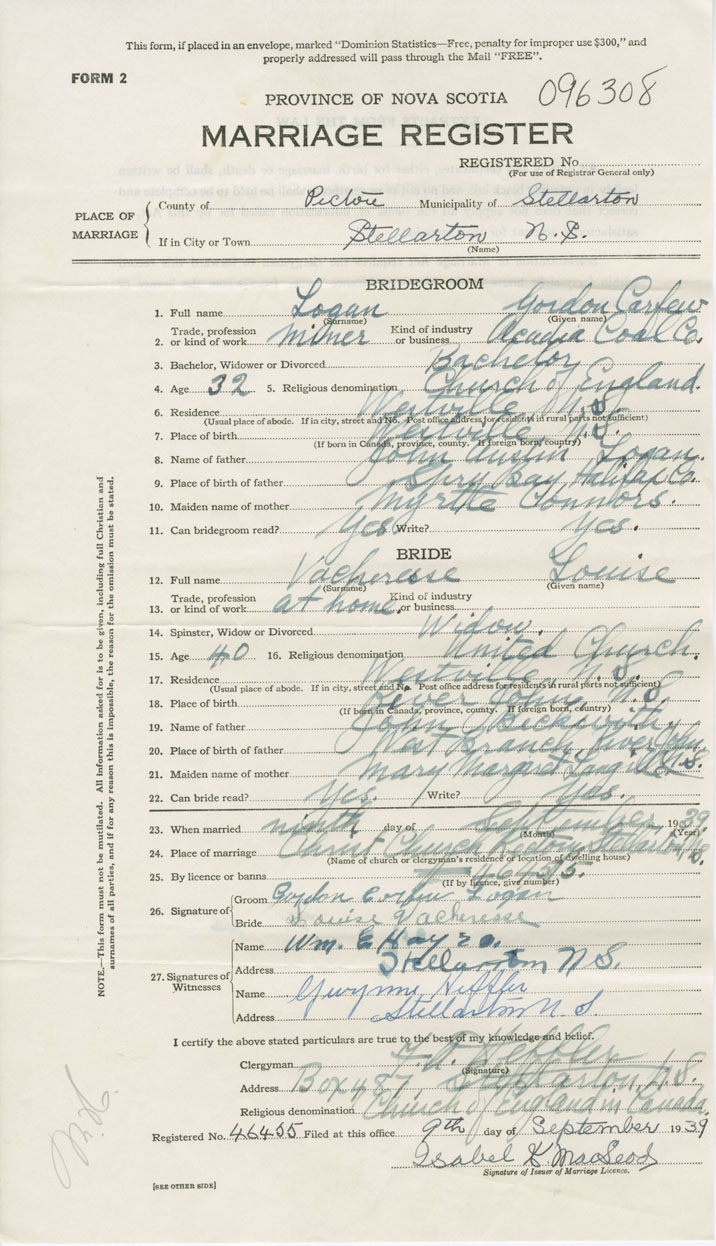 This form, if placed in an envelope, marked "Dominion Statistics—Free, penalty for improper use $300," and
properly addressed will pass through the Mail "FREE".
FORM 2
PROVINCE OF NOVA SCOTIA 096308
MARRIAGE REGISTER
REGISTERED No.
(For use of Registrar General only)
PLACE OF MARRIAGE
County of Pictou Municipality of Stellarton
If in City or Town Stellarton N.S.
(Name)
BRIDEGROOM
1. Full name Logan Gordon Carfew
(Surname) (Given name)
2. Trade, profession or kind of work Miner Kind of industry or business Acadia Coal Co.
3. Bachelor, Widower or Divorced Bachelor
4. Age 32 5. Religious denomination Church of England.
6. Residence Westville N.S.
(Usual place of abode. If in city, street and No. Post office address for residents in rural parts not sufficient)
7. Place of birth Westville, N.S.
(If born in Canada, province, county. If foreign born, country)
8. Name of father John Austin Logan.
9. Place of birth of father Spry Bay Halifax Co.
10. Maiden name of mother Myrtle Connors.
11. Can bridegroom read? Yes Write? Yes.
BRIDE
12. Full name Vacheresse Louise
(Surname) (Given name)
13. Trade, profession or kind of work at home. Kind of industry or business
14. Spinster, Widow or Divorced Widow.
15. Age 40 16. Religious denomination United Church.
17. Residence Westville, N.S.
(Usual place of abode. If in city, street and No. Post office address for residents in rural parts not sufficient)
18. Place of birth River John, N.S.
(If born in Canada, province, county. If foreign born, country)
19. Name of father John Beckwith.
20. Place of birth of father West Branch, River John
21. Maiden name of mother Mary Margaret Langill N.S.
22. Can bride read? Yes. Write? Yes.
23. When married ninth day of September 1939
(Month) (Year)
24. Place of marriage Christ Church Rectory Stellarton, N.S.
(Name of church or clergyman's residence or location of dwelling house)
25. By licence or banns
(If by licence, give number)
26. Signature of Groom Gordon Carfew Logan
Bride Louise Vacheresse
27. Signatures of Witnesses
Name Wm. E Hay
Address Stellarton N.S.
Name Gwynne
Address Stellarton N.S.
I certify the above stated particulars are true to the best of my knowledge and belief.
Clergyman
(Signature)
Address Box 487 Stellarton, N.S.
Religious denomination Church of England in Canada.
Registered No. 46455 Filed at this office 9th day of September 1939
Isabel K. MacLeod
Signature of Issuer of Marriage Licence.
[SEE OTHER SIDE]
NOTE.—This form must not be mutilated. All Information asked for is to be given, including full Christian and
surnames of all parties, and if for any reason this is impossible, the reason for the omission must be stated.